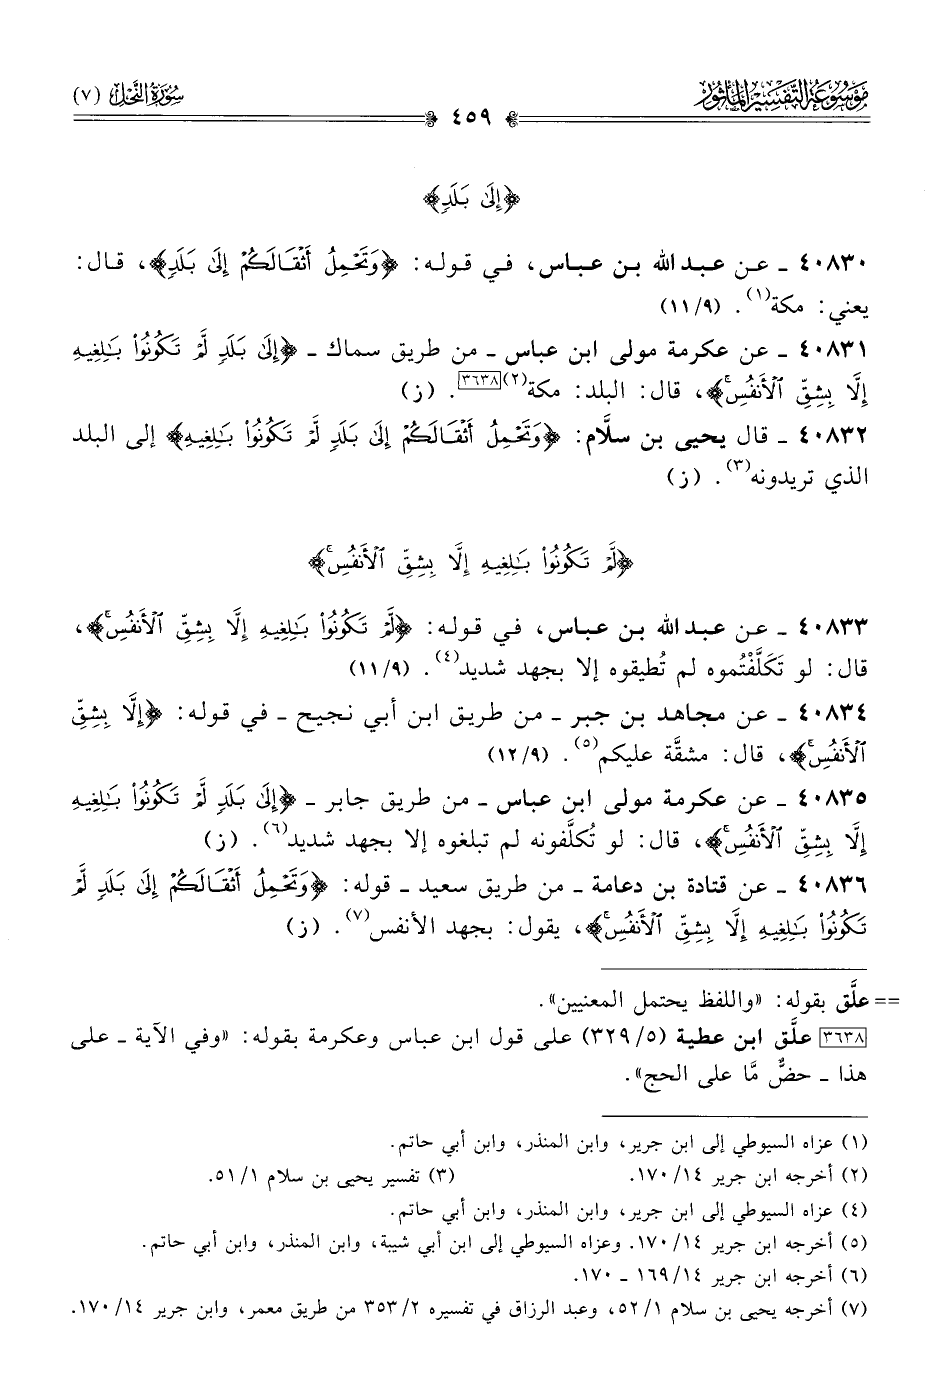 مَوْسُوعَةُ التَّفْسِيرِ المَأْثُورِ
٤٥٩
سُورَةُ النَّحْلِ (٧)
﴿إِلَىٰ بَلَدٍ﴾
٤٠٨٣٠ ـ عن عبد الله بن عباس، في قوله: ﴿وَتَحْمِلُ أَثْقَالَكُمْ إِلَىٰ بَلَدٍ﴾، قال:
يعني: مكة(١). (١١/٩)
٤٠٨٣١ ـ عن عكرمة مولى ابن عباس ـ من طريق سماك ـ ﴿إِلَىٰ بَلَدٍ لَّمْ تَكُونُوا۟ بَـٰلِغِيهِ
إِلَّا بِشِقِّ ٱلْأَنفُسِ ۚ﴾، قال: البلد: مكة(٢)[٣٦٣٨]. (ز)
٤٠٨٣٢ ـ قال يحيى بن سلَّام: ﴿وَتَحْمِلُ أَثْقَالَكُمْ إِلَىٰ بَلَدٍ لَّمْ تَكُونُوا۟ بَـٰلِغِيهِ﴾ إلى البلد
الذي تريدونه(٣). (ز)
﴿لَّمْ تَكُونُوا۟ بَـٰلِغِيهِ إِلَّا بِشِقِّ ٱلْأَنفُسِ ۚ﴾
٤٠٨٣٣ ـ عن عبد الله بن عباس، في قوله: ﴿لَّمْ تَكُونُوا۟ بَـٰلِغِيهِ إِلَّا بِشِقِّ ٱلْأَنفُسِ ۚ﴾،
قال: لو تَكَلَّفْتُموه لم تُطيقوه إلا بجهد شديد(٤). (١١/٩)
٤٠٨٣٤ ـ عن مجاهد بن جبر ـ من طريق ابن أبي نجيح ـ في قوله: ﴿إِلَّا بِشِقِّ
ٱلْأَنفُسِ ۚ﴾، قال: مشقَّة عليكم(٥). (١٢/٩)
٤٠٨٣٥ ـ عن عكرمة مولى ابن عباس ـ من طريق جابر ـ ﴿إِلَىٰ بَلَدٍ لَّمْ تَكُونُوا۟ بَـٰلِغِيهِ
إِلَّا بِشِقِّ ٱلْأَنفُسِ ۚ﴾، قال: لو تُكلَّفونه لم تبلغوه إلا بجهد شديد(٦). (ز)
٤٠٨٣٦ ـ عن قتادة بن دعامة ـ من طريق سعيد ـ قوله: ﴿وَتَحْمِلُ أَثْقَالَكُمْ إِلَىٰ بَلَدٍ لَّمْ
تَكُونُوا۟ بَـٰلِغِيهِ إِلَّا بِشِقِّ ٱلْأَنفُسِ ۚ﴾، يقول: بجهد الأنفس(٧). (ز)
== علَّق بقوله: «واللفظ يحتمل المعنيين».
[٣٦٣٨] علَّق ابن عطية (٣٢٩/٥) على قول ابن عباس وعكرمة بقوله: «وفي الآية ـ على
هذا ـ حضٌّ مَّا على الحج».
(١) عزاه السيوطي إلى ابن جرير، وابن المنذر، وابن أبي حاتم.
(٢) أخرجه ابن جرير ١٧٠/١٤. (٣) تفسير يحيى بن سلام ٥١/١.
(٤) عزاه السيوطي إلى ابن جرير، وابن المنذر، وابن أبي حاتم.
(٥) أخرجه ابن جرير ١٧٠/١٤. وعزاه السيوطي إلى ابن أبي شيبة، وابن المنذر، وابن أبي حاتم.
(٦) أخرجه ابن جرير ١٦٩/١٤ ـ ١٧٠.
(٧) أخرجه يحيى بن سلام ٥٢/١، وعبد الرزاق في تفسيره ٣٥٣/٢ من طريق معمر، وابن جرير ١٧٠/١٤.